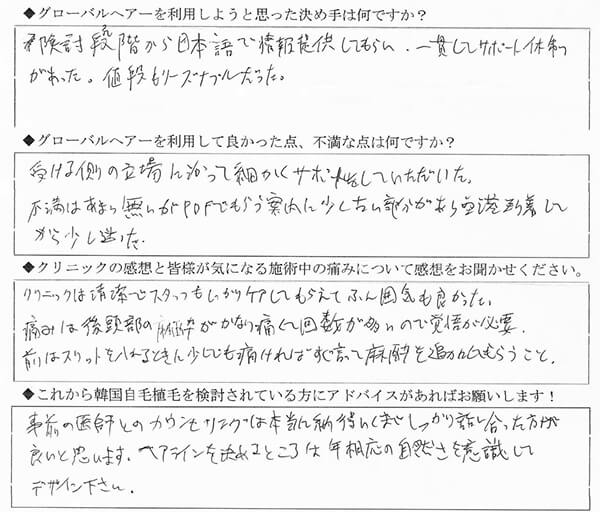 ◆グローバルヘアーを利用しようと思った決め手は何ですか？
検討段階から日本語で情報提供してもらい、一貫してサポート体制
があった。値段もリーズナブルだった。
◆グローバルヘアーを利用して良かった点、不満な点は何ですか？
受ける側の立場に沿って細かくサポートしていただいた。
不満はあまり無いがPDFでもらう案内に少し古い部分があり空港到着して
から少し迷った。
◆クリニックの感想と皆様が気になる施術中の痛みについて感想をお聞かせください。
クリニックは清潔でスタッフもしっかりケアしてもらえてふん囲気も良かった。
痛みは後頭部の麻酔がかなり痛くて回数が多いので覚悟が必要。
前はスリットを入れるときに少しでも痛ければすぐ言って麻酔を追加してもらうこと。
◆これから韓国自毛植毛を検討されている方にアドバイスがあればお願いします！
事前の医師とのカウンセリングは本当に納得いくまでしっかり話し合った方が
良いと思います。ヘアラインを決めるところは年相応の自然さを意識して
デザイン下さい。